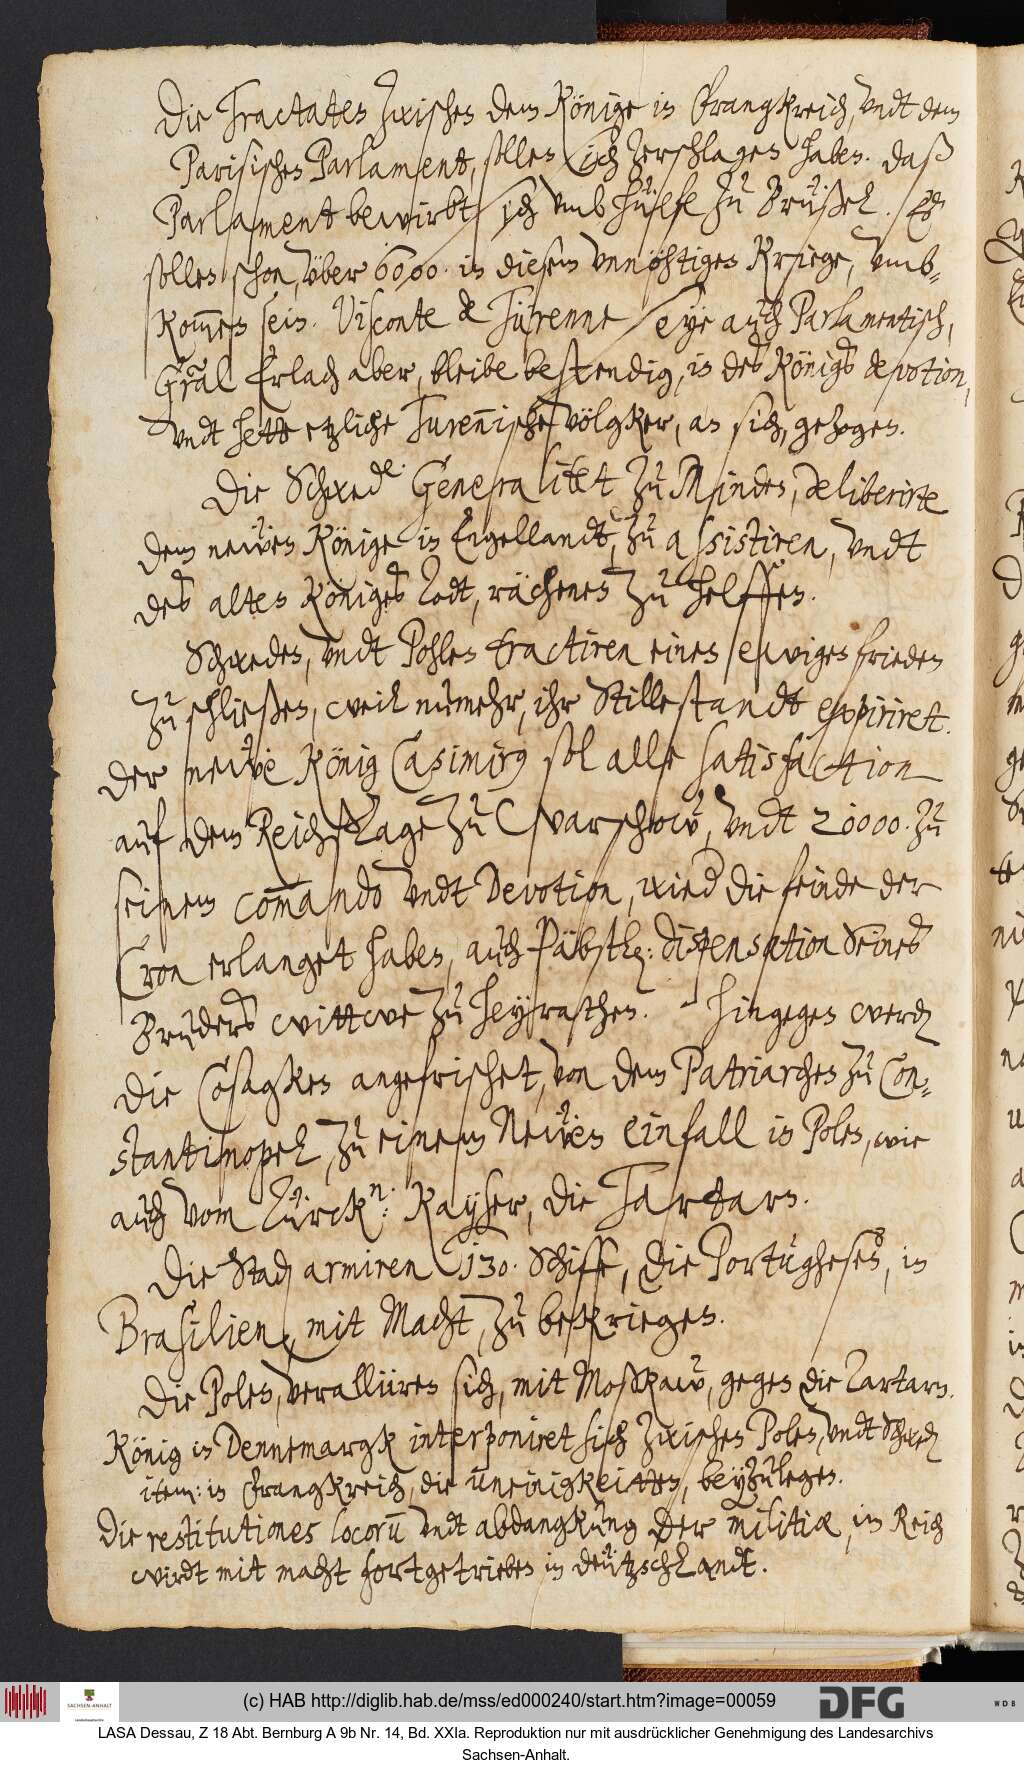 Die Tractaten zwischen dem Könige in Franckreich, undt dem
Parisischen Parlament, sollen sich zerschlagen haben. Daß
Parlament bewirbt sich umb hülfe zu Brüßel. Es
sollen schon, über 6000. in diesem unnöhtigen Kriege, umb-
kom̄en sein. Visconte de Türenne seye auch Parlamentisch,
Gräal Erlach aber, bleibe bestendig, in des Königs devotion,
undt hette etzliche Turen̄ische völgker, an sich, gezogen.
Die Schwede: Generalitet zu Minden, deliberirte
dem neẅen Könige in Engellandt, zu assistiren, undt
des alten Königes Todt, rächenen zu helffen.
Schweden, undt Pohlen tractiren einen ewigen frieden
zu schließen, weil nunmehr, ihr Stillestandt expiriret.
Der neẅe König Casimirus sol alle satisfaction
auf dem Reichstage zu Warschow, undt 20000. zu
seinem com̄ando undt Devotion, wied die feinde der
Cron erlanget haben, auch Päbstl: dispensation Seines
Bruders wittwe zu heyrathen. hingegen werden
die Cosagken angefrischet, von dem Patriarchen zu Con-
stantinopel, zu einem Neẅen einfall in Polen, wie
auch vom Türckn: Kayser, die Tartarn.
Die Stadn armiren 130. Schiffe, die Portughesen, in
Brasilien, mit Macht, zu bekriegen.
Die Polen, veralliiren sich, mit Moßkaw, gegen die Tartarn.
König in Dennemargk interponiret sich zwischen Polen, undt Schweden
item: in Franckreich, die uneinigkeitten, beyzulegen.
Die restitutiones locorū undt abdangkung der militiæ, im Reich
wirdt mit macht fortgetrieben in deützschlandt.
(c) HAB http://diglib.hab.de/mss/ed000240/start.htm?image=00059
SACHSEN-ANHALT
DFG
WDB
LASA Dessau, Z 18 Abt. Bernburg A 9b Nr. 14, Bd. XXIa. Reproduktion nur mit ausdrücklicher Genehmigung des Landesarchivs
Sachsen-Anhalt.